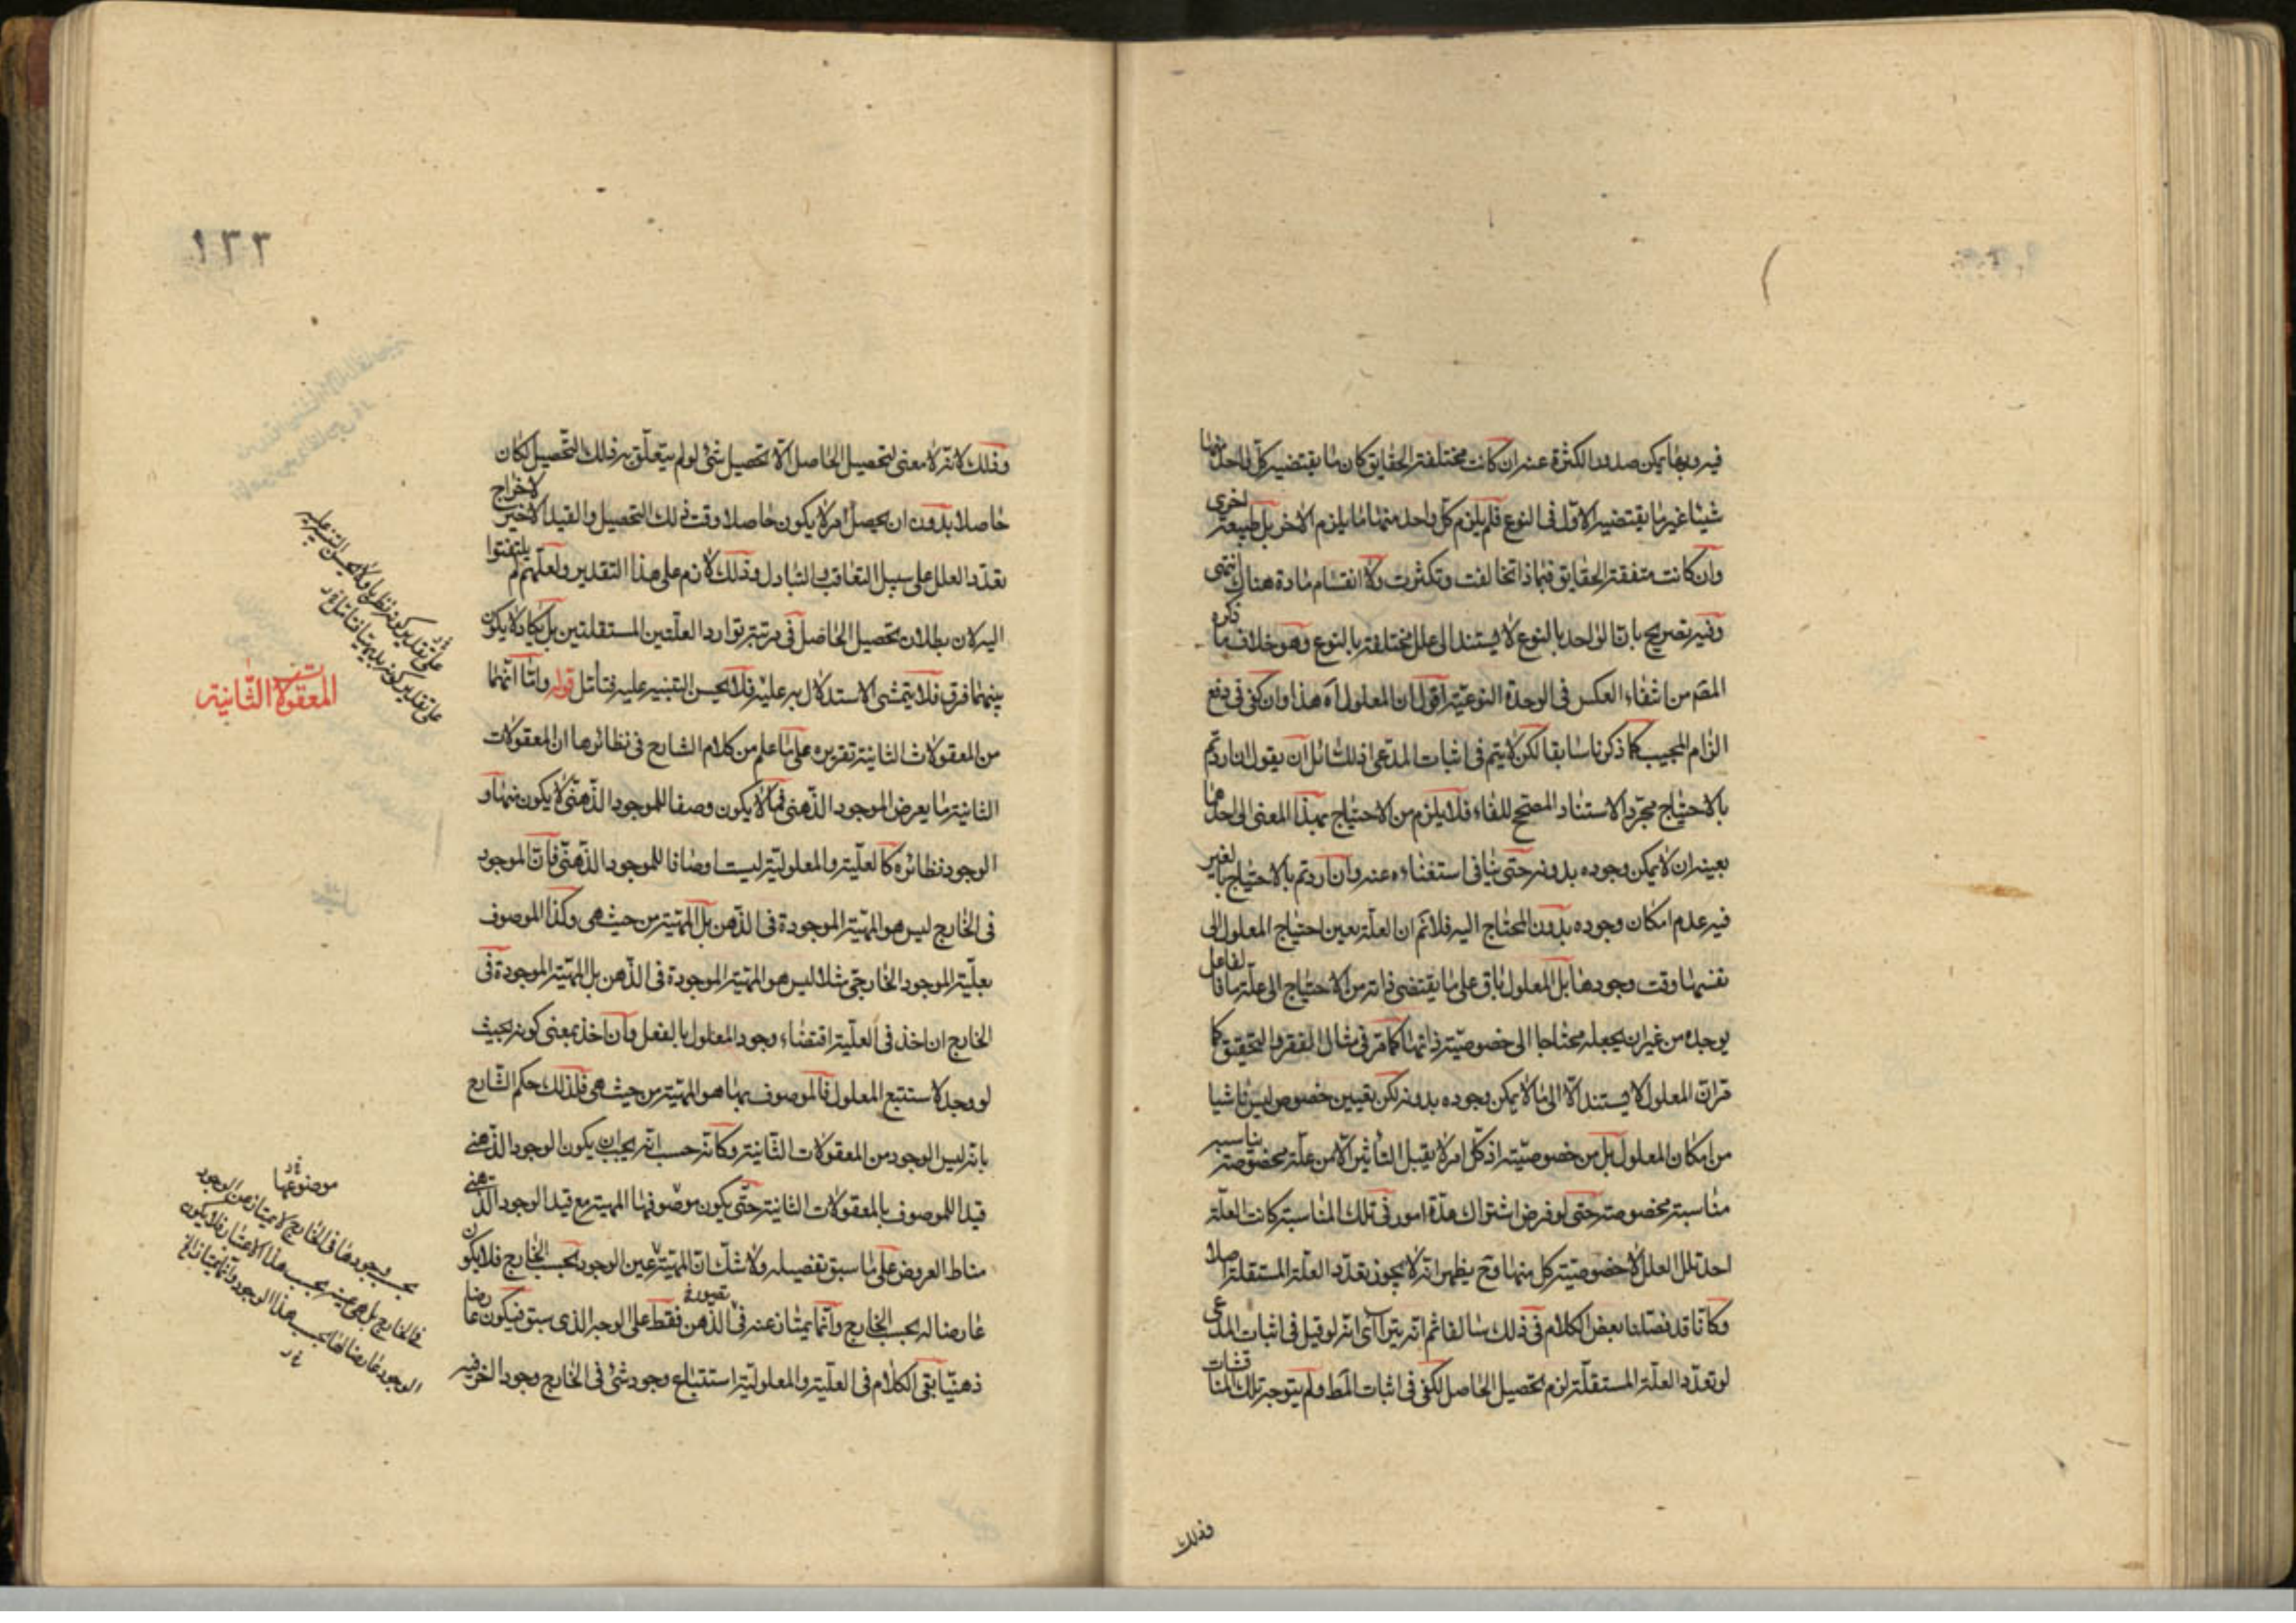 فيه وبها يمكن صدور الكثرة عنه ان كانت مختلفة الحقايق كان ما يقتضيه كل واحد منها
شيئا غير ما يقتضيه الاول في النوع فلم يلزم كل واحد منهما ما يلزم الاخر بل طبيعة اخرى
وان كانت متفقة الحقايق فبماذا تخالفت وتكثرت ولا انقسام مادة هناك انتهى
وفيه تصريح بان الواحد بالنوع لا يستند الى علل مختلفة بالنوع وهو خلاف ما ذكره
المصم من انتفاء العكس في الوحدة النوعية اقول ان المعلول اه هذا وان كفى في دفع
الزام المجيب كما ذكرنا سابقا لكن لا يتم في اثبات المدعى اذ لسائل ان يقول ان اردتم
بالاحتياج مجرد الاستناد المصحح للفاء فلا يلزم من الاحتياج بهذا المعنى الى احدهما
بعينه ان لا يمكن وجوده بدونه حتى ينافى استغناءه عنه وان اردتم بالاحتياج بالغير
فيه عدم امكان وجوده بدون المحتاج اليه فلانم ان العلة بعين احتياج المعلول الى
نفسها وقت وجودها بل المعلول باق على ما يقتضى ذاته من الاحتياج الى علة ما فالفاعل
يوجده من غير ان يجعله محتاجا الى خصوصية ذاتها كما مر في مثال الفقر والتحقيق كما
مر ان المعلول لا يستند الا الى ما لا يمكن وجوده بدونه لكن تعيين خصوص ليس ناشيا
من امكان المعلول بل من خصوصيته اذ كل امر لا يقبل التأثير الا من علة مخصوصة يناسبه
مناسبة مخصوصة حتى لو فرض اشتراك عدة امور في تلك المناسبة كانت العلة
احد تلك العلل لا خصوصية كل منها وح يظهر انه لا يجوز تعدد العلة المستقلة اصلا
وكانا قد فصلنا بعض الكلام في ذلك سالفا ثم انه يترا اى انه لو قيل في اثبات المدعى
لو تعدد العلة المستقلة لزم تحصيل الحاصل لكفى في اثبات المط ولم يتوجه تلك المناقشات
وذلك
١٢٢
وذلك لانه لا معنى لتحصيل الحاصل الا تحصيل شئ لو لم يتعلق به ذلك التحصيل لكان
حاصلا بدون ان يحصل امر لا يكون حاصلا وقت ذلك التحصيل والقيد الاخير لاخراج
تعدد العلل على سبيل التعاقب والتبادل وذلك لازم على هذا التقدير ولعلهم لم يلتفتوا
اليه لان بطلان تحصيل الحاصل في مرتبة توارد العلتين المستقلتين بل يكاد لا يكون
بينهما فرق فلا يتمشى الاستدلال به عليه فلا يحسن التنبيه عليه فتأمل قوله وانا انهما
من المعقولات الثانية تقريره على ما علم من كلام الشارح في نظائرها ان المعقولات
الثانية ما يعرض الموجود الذهنى فما لا يكون وصفا للموجود الذهنى لا يكون منها و
الوجود ونظائره كالعلية والمعلولية ليست اوصافا للموجود الذهنى فان الموجود
في الخارج ليس هو المهية الموجودة في الذهن بل المهية من حيث هى وكذا الموصوف
بعلية الموجود الخارجى مثلا ليس هو المهية الموجودة في الذهن بل المهية الموجودة فى
الخارج ان اخذ في العلية اقتضاء وجود المعلول بالفعل وان اخذ بمعنى كونه بحيث
لو وجد لاستتبع المعلول فالموصوف بها هو المهية من حيث هى فلذلك حكم الشارح
بانه ليس الوجود من المعقولات الثانية وكأنه حسب انه يجب ان يكون الوجود الذهنى
قيدا للموصوف بالمعقولات الثانية حتى يكون موصوفها المهية مع قيد الوجود الذهنى
مناط العروض على ما سبق تفصيله ولا شك ان المهية عين الوجود بحسب الخارج فلا يكون
عارضا له بحسب الخارج وانما يمتاز عنه في الذهن فقط على الوجه الذى سبق فيكون عارضا
تصوره
ذهنيا بقى الكلام في العلية والمعلولية استتباع وجود شئ في الخارج وجود اخر فيه
المعقولات الثانية
على تقدير كونه نظريا ولا يحسن التنبيه عليه
على تقدير كونه بديهيا فتامل
موضوعها
بحسب وجودها فى الخارج لا يمتاز عن الوجود
فى الخارج بل هى عينه بحسب هذا الاعتبار فلا يكون
الوجود عارضا لها بحسب هذا الوجود وانما يمتاز الخ